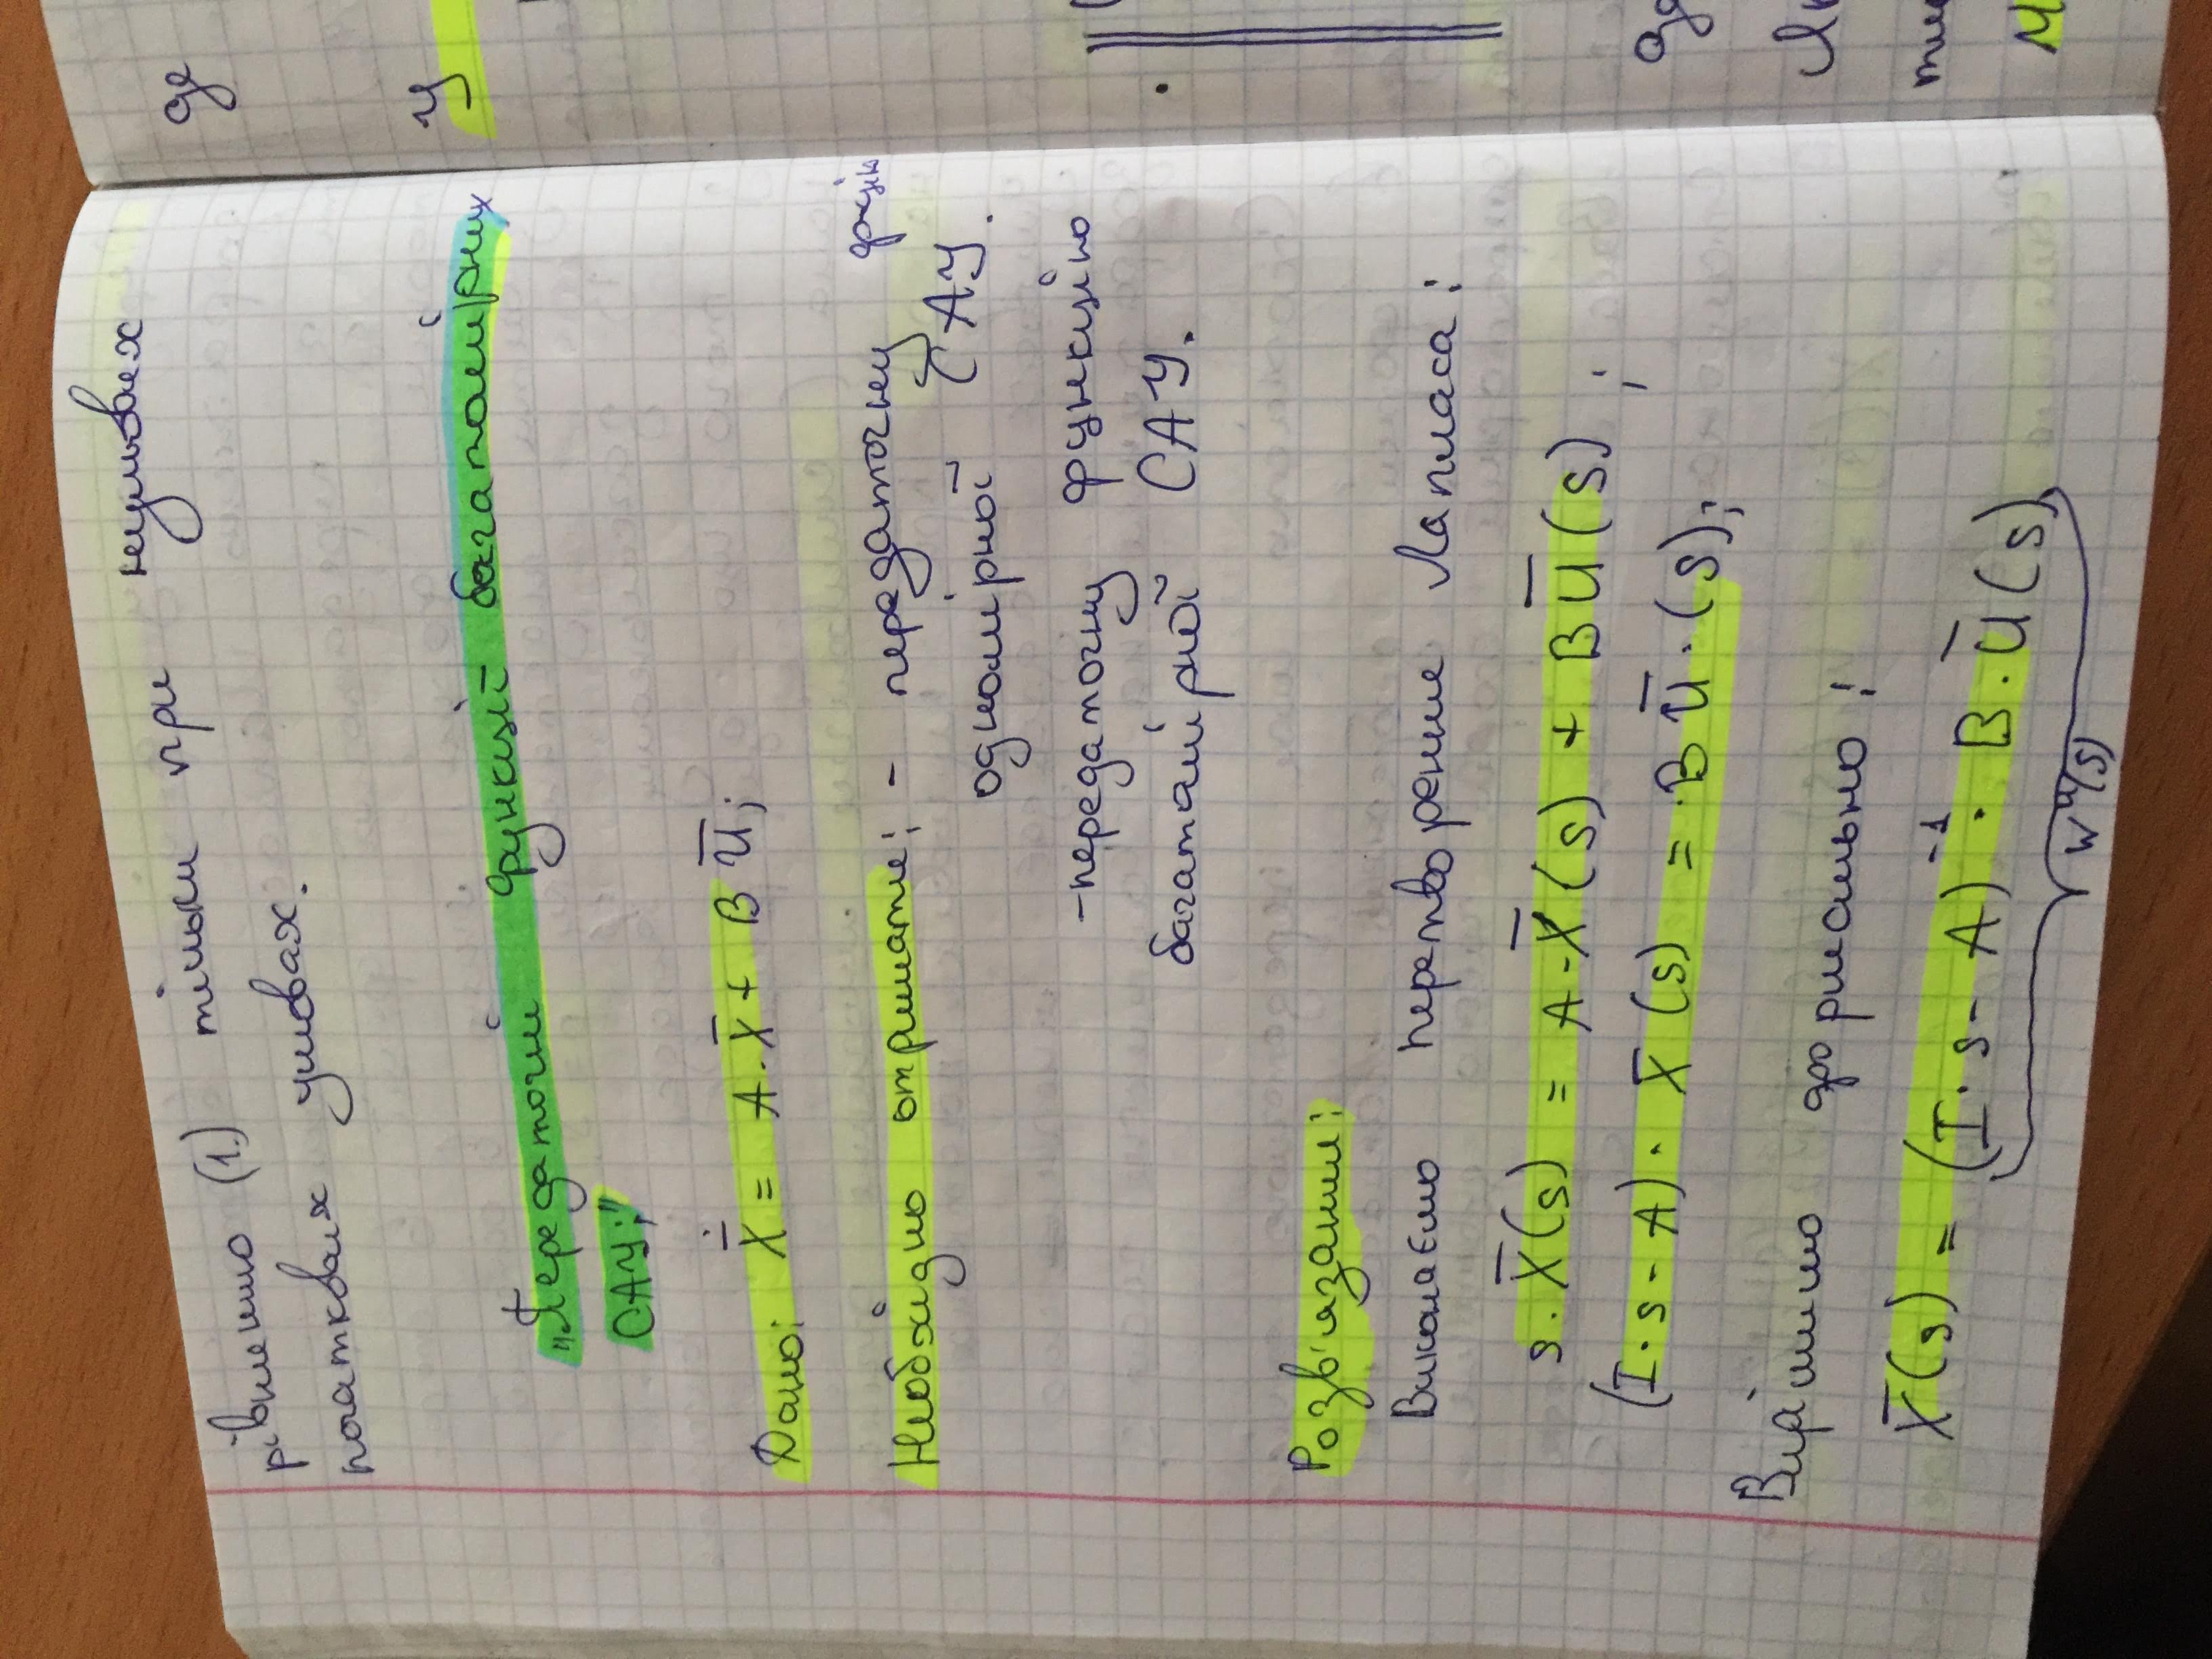 рівненню (1.) тільки при нульових
початкових умовах.
„Передаточні функції багатомірних
САУ;"
Дано: Ẋ̅ = A · X̅ + B U̅;
Необхідно отримати: - передаточну фцію
одномірної САУ.
- передаточну функцію
багатомірної САУ.
Розв'язання:
Виконаємо перетворення Лапласа:
s · X̅(s) = A · X̅(s) + B U̅(s) ;
(I · s - A) · X̅(s) = · B U̅ · (s);
Вирішимо формально:
X̅(s) = (I · s - A)⁻¹ · B · U̅(s)
Wᵘ(s)
де
У
де